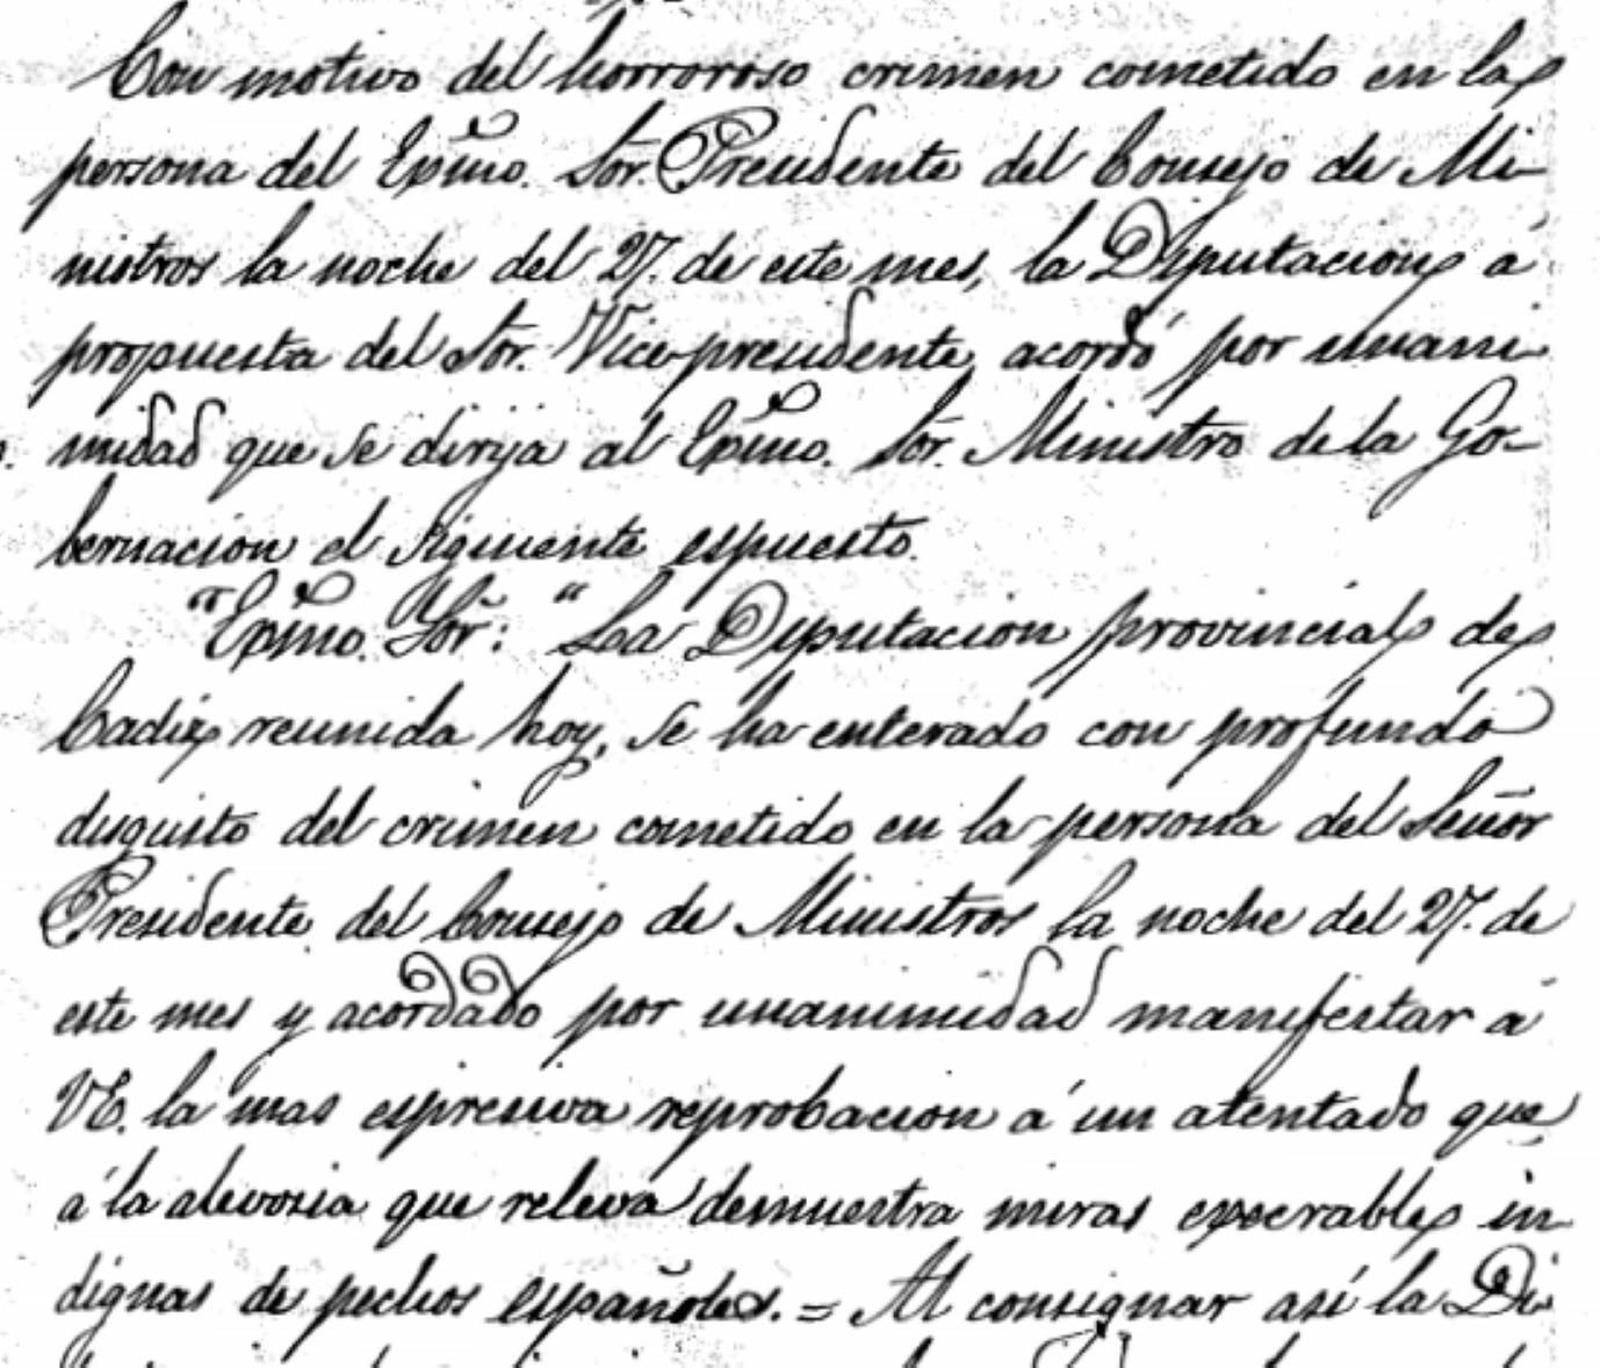 Con motivo del horroroso crimen cometido en la
persona del Exmo. Sor. Presidente del Consejo de Mi-
nistros la noche del 27. de este mes, la Diputacion á
propuesta del Sor. Vice-presidente acordó por unani-
midad que se dirija al Exmo. Sor. Ministro de la Go-
bernacion el siguiente espuesto.
"Exmo. Sor: "La Diputacion provincial de
Cadiz reunida hoy, se ha enterado con profundo
disgusto del crimen cometido en la persona del Señor
Presidente del Consejo de Ministros la noche del 27. de
este mes y acordado por unanimidad manifestar á
VE. la mas espresiva reprobacion á un atentado que
á la alevosia que releva demuestra miras execrables in-
dignas de pechos españoles. = Al consignar así la Di-